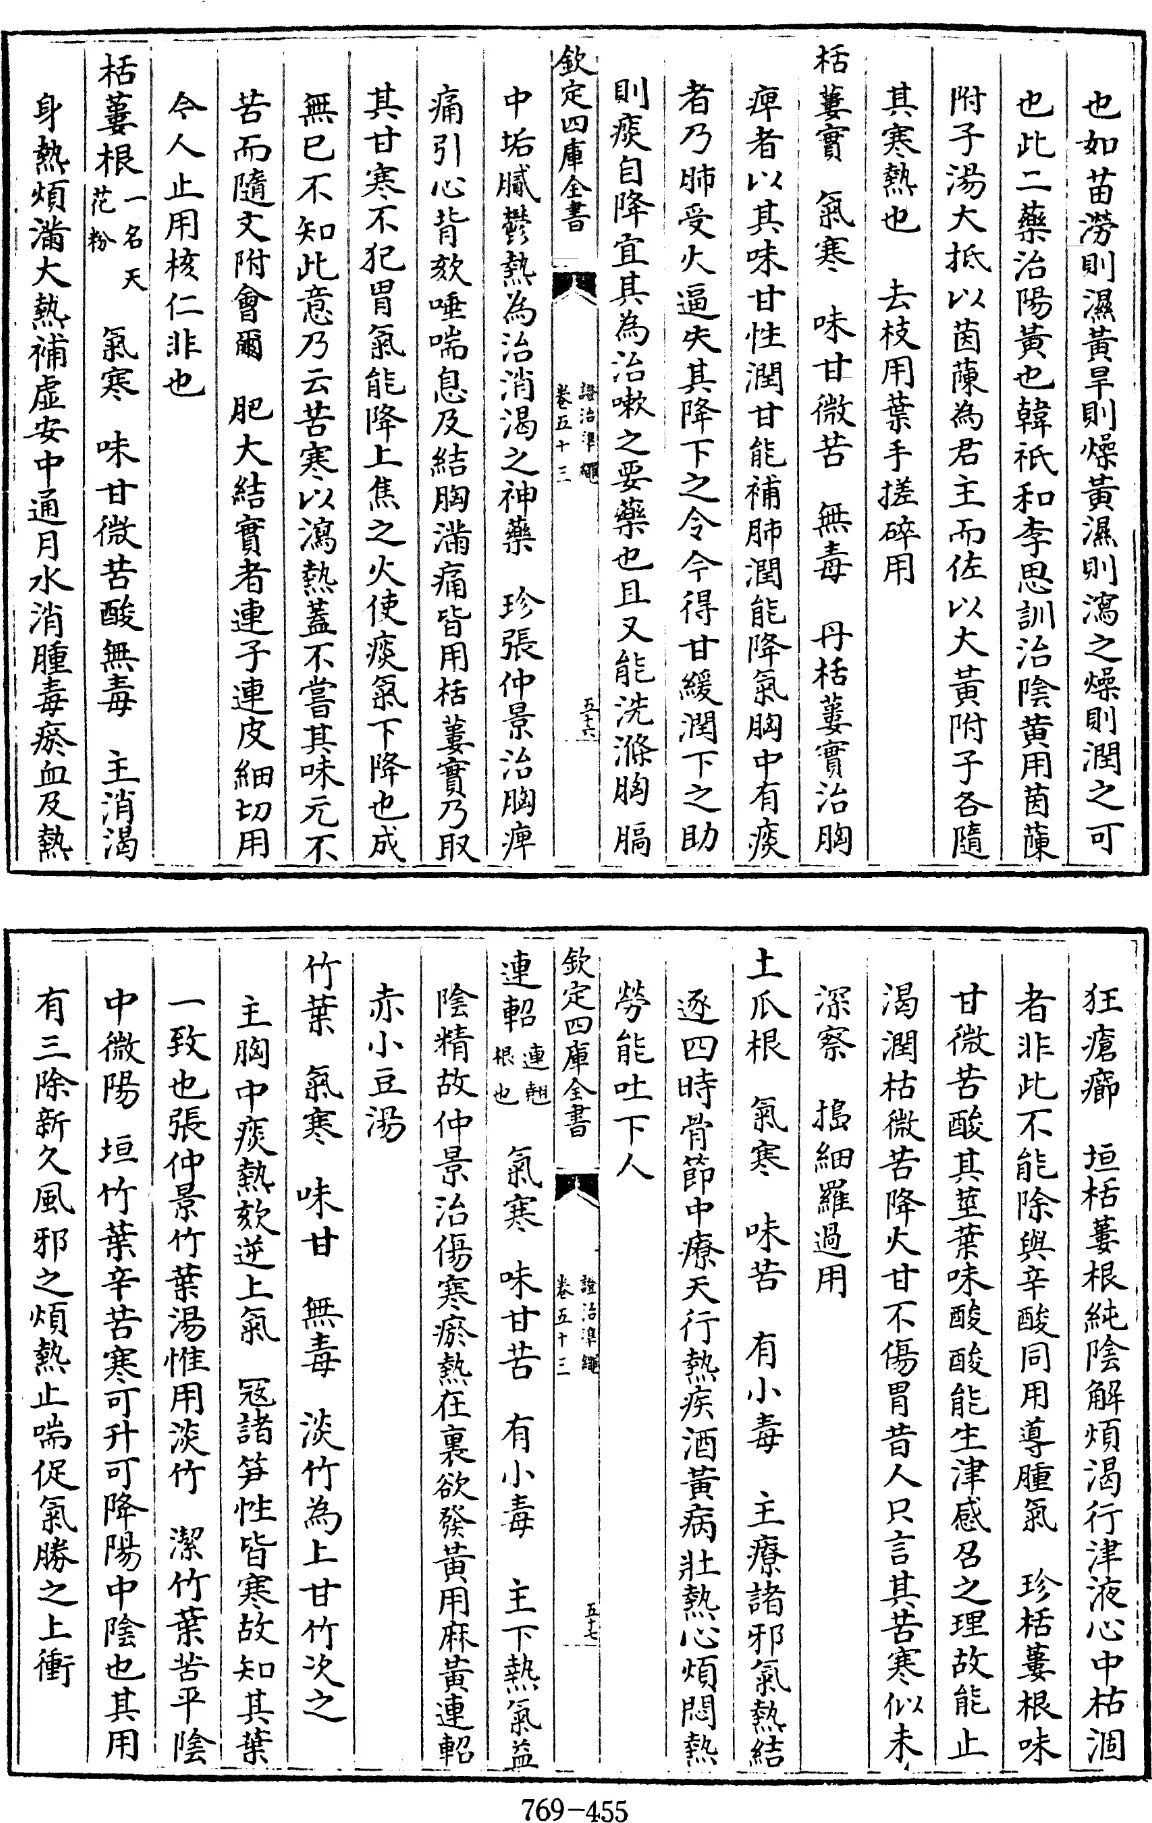 也如苗澇則濕黃旱則燥黃濕則瀉之燥則潤之可
也此二藥治陽黃也韓祇和李思訓治陰黃用茵蔯
附子湯大抵以茵蔯為君主而佐以大黃附子各隨
其寒熱也　去枝用葉手搓碎用
栝蔞實　氣寒　味甘微苦　無毒　丹栝蔞實治胸
痺者以其味甘性潤甘能補肺潤能降氣胸中有痰
者乃肺受火逼失其降下之令今得甘緩潤下之助
則痰自降宜其為治嗽之要藥也且又能洗滌胸膈
欽定四庫全書　證治準繩卷五十三　五十六
中垢膩鬱熱為治消渴之神藥　珍張仲景治胸痺
痛引心背欬唾喘息及結胸滿痛皆用栝蔞實乃取
其甘寒不犯胃氣能降上焦之火使痰氣下降也成
無已不知此意乃云苦寒以瀉熱蓋不嘗其味元不
苦而隨文附會爾　肥大結實者連子連皮細切用
今人止用核仁非也
栝蔞根一名天花粉　氣寒　味甘微苦酸無毒　主消渴
身熱煩滿大熱補虛安中通月水消腫毒瘀血及熱
狂瘡癤　垣栝蔞根純陰解煩渴行津液心中枯涸
者非此不能除與辛酸同用導腫氣　珍栝蔞根味
甘微苦酸其莖葉味酸酸能生津感召之理故能止
渴潤枯微苦降火甘不傷胃昔人只言其苦寒似未
深察　搗細羅過用
土瓜根　氣寒　味苦　有小毒　主療諸邪氣熱結
逐四時骨節中療天行熱疾酒黃病壯熱心煩悶熱
勞能吐下人
欽定四庫全書　證治準繩卷五十三　五十七
連軺連翹根也　氣寒　味甘苦　有小毒　主下熱氣益
陰精故仲景治傷寒瘀熱在裏欲發黃用麻黃連軺
赤小豆湯
竹葉　氣寒　味甘　無毒　淡竹為上甘竹次之
主胸中痰熱欬逆上氣　冦諸笋性皆寒故知其葉
一致也張仲景竹葉湯惟用淡竹　潔竹葉苦平陰
中微陽　垣竹葉辛苦寒可升可降陽中陰也其用
有三除新久風邪之煩熱止喘促氣勝之上衝
769-455